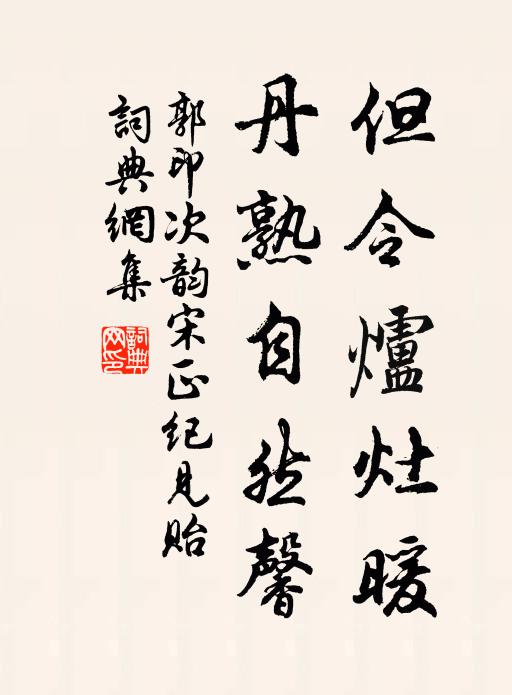 但令爐灶暖
丹熟自然馨
郭印次韵宋正纪见贻
詞典網集
詞典網印